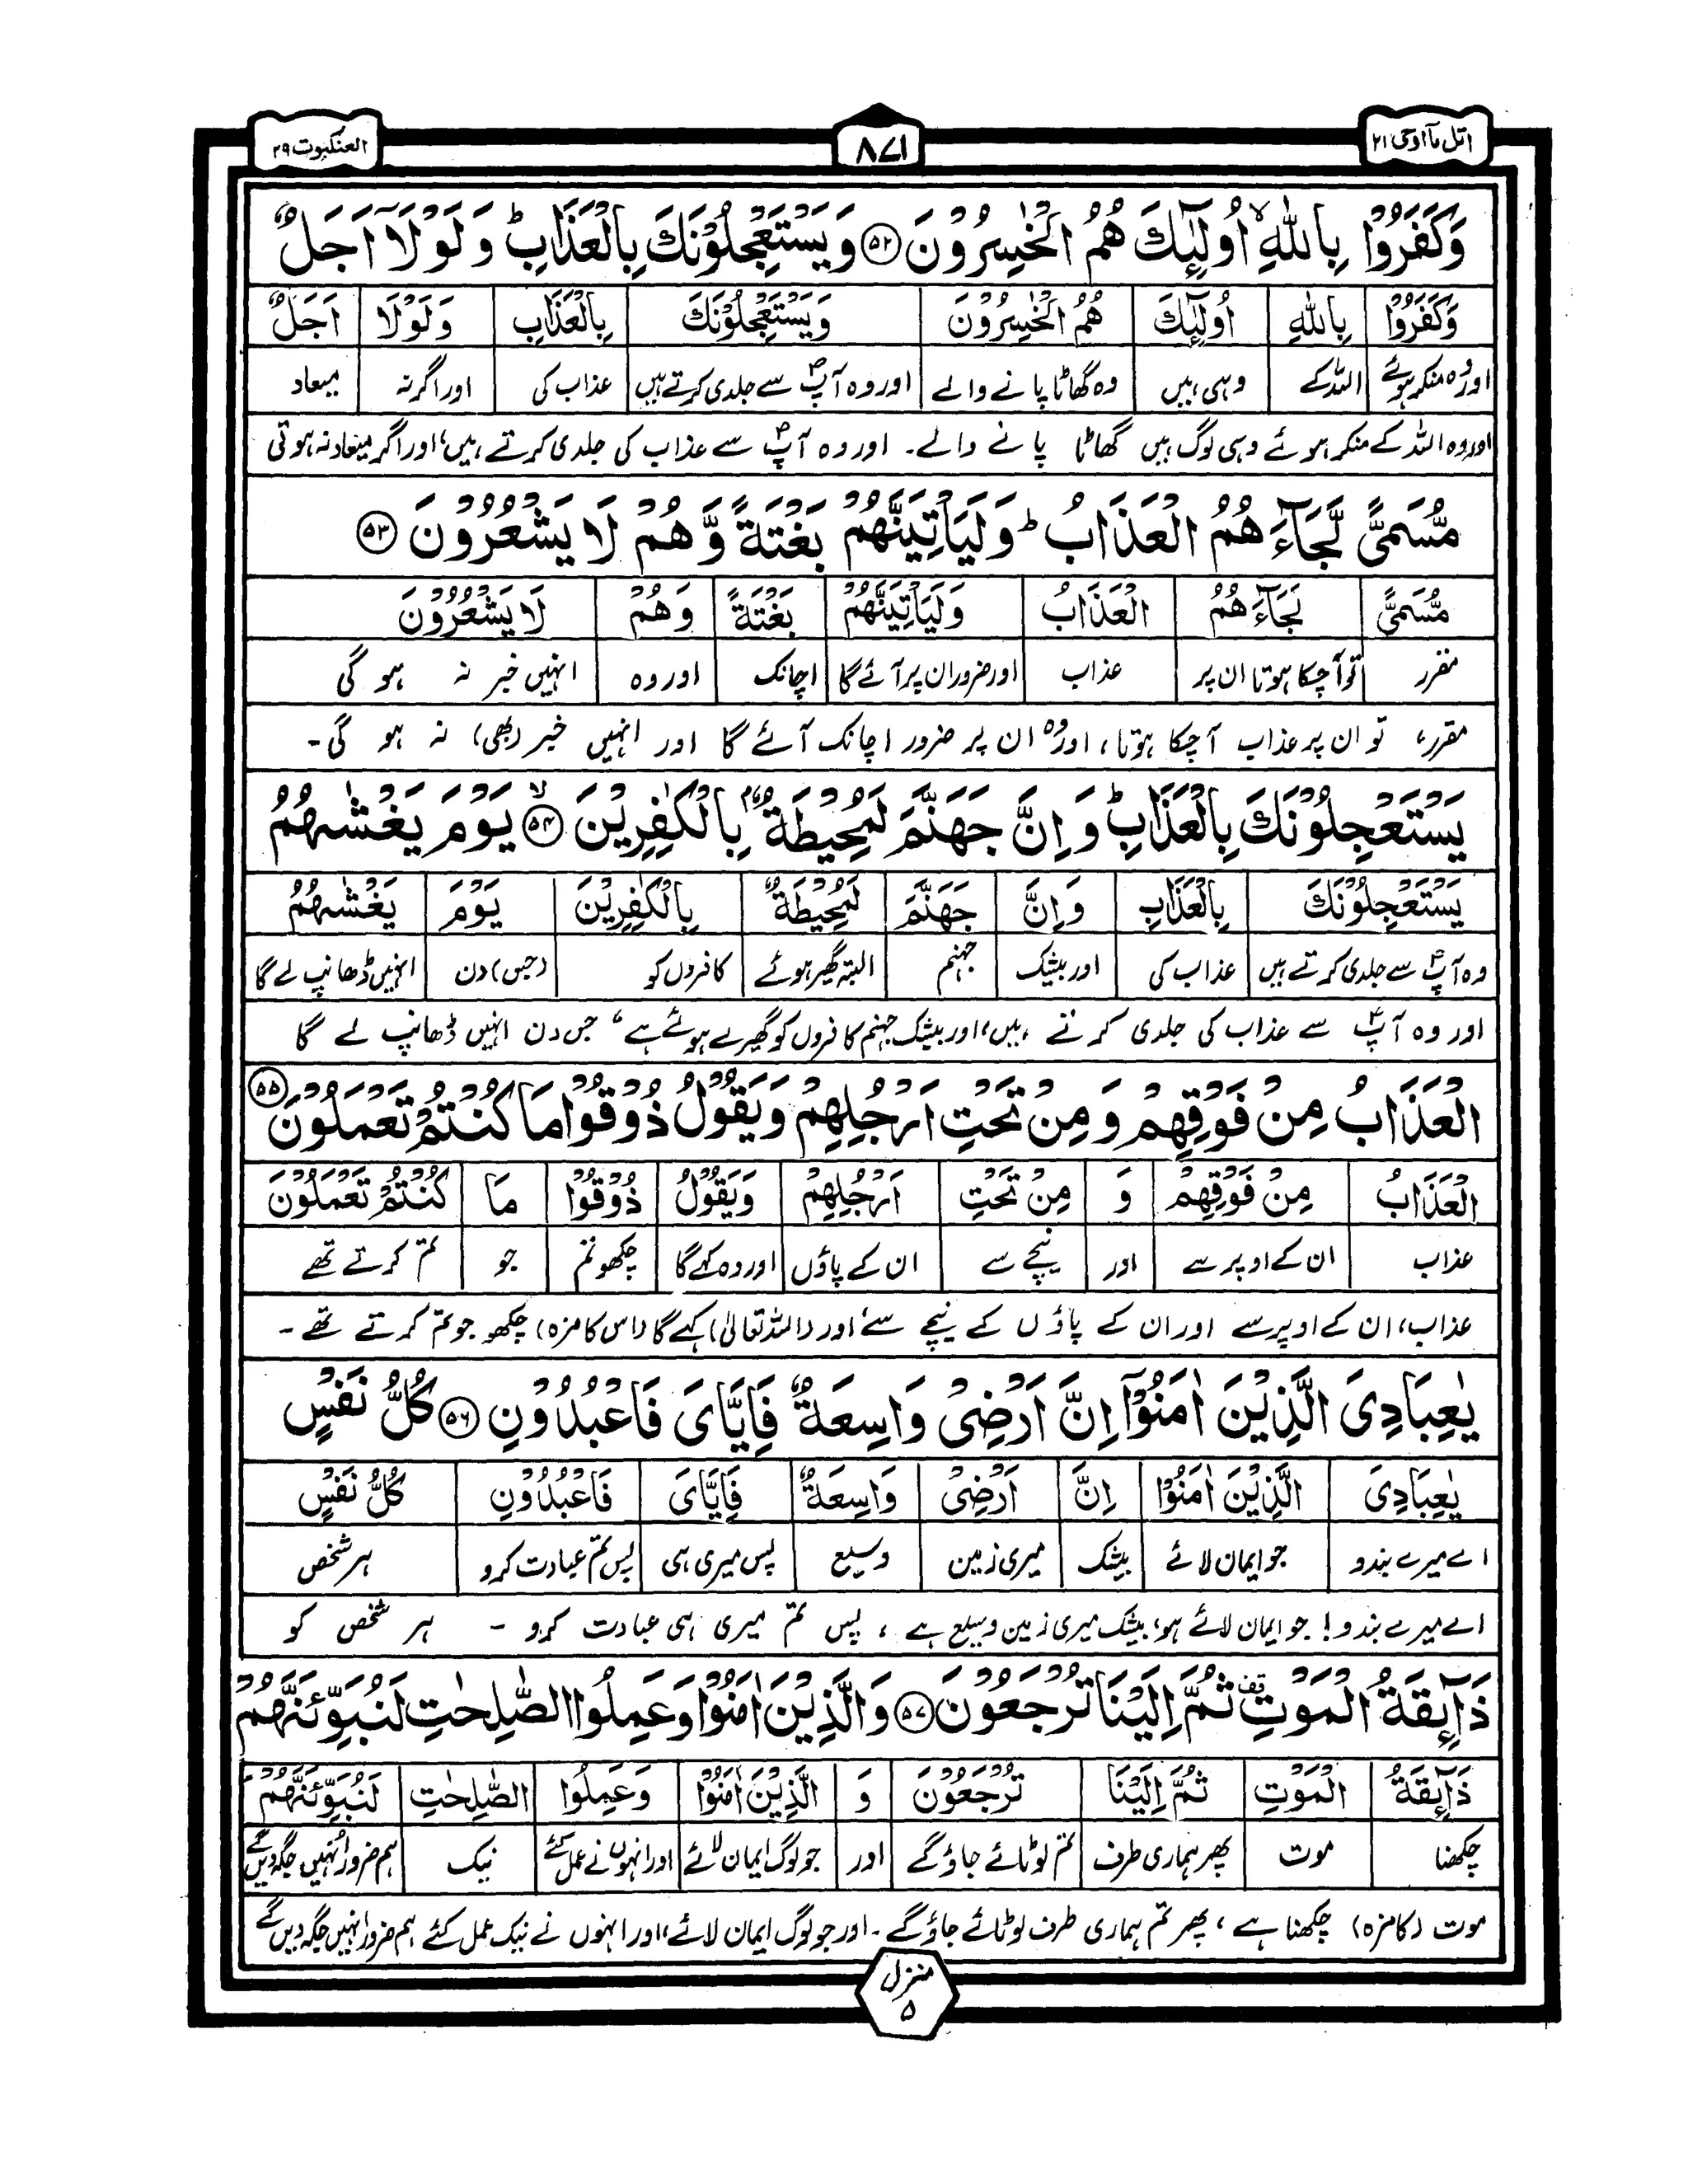 اتل مآ اوحی ۲۱
۸۷۱
العنکبوت ۲۹
وَكَفَرُوْا بِاللّٰهِ ۙ اُولٰٓئِكَ هُمُ الْخٰسِرُوْنَ ﴿۵۲﴾ وَيَسْتَعْجِلُوْنَكَ بِالْعَذَابِ ؕ وَلَوْلَاۤ اَجَلٌ
وَكَفَرُوْا | بِاللّٰهِ | اُولٰٓئِكَ | هُمُ الْخٰسِرُوْنَ | وَيَسْتَعْجِلُوْنَكَ | بِالْعَذَابِ | وَلَوْلَا | اَجَلٌ
اور وہ منکر ہوئے | اللہ کے | وہی ہیں | وہ گھاٹا پانے والے | اور وہ آپؐ سے جلدی کرتے ہیں | عذاب کی | اور اگر نہ | میعاد
اور وہ اللہ کے منکر ہوئے وہی لوگ ہیں گھاٹا پانے والے۔ اور وہ آپؐ سے عذاب کی جلدی کرتے ہیں، اور اگر میعاد نہ ہوتی
مُّسَمًّى لَّجَآءَهُمُ الْعَذَابُ ؕ وَلَيَاْتِيَنَّهُمْ بَغْتَةً وَّهُمْ لَا يَشْعُرُوْنَ ﴿۵۳﴾
مُّسَمًّى | لَجَآءَهُمُ | الْعَذَابُ | وَلَيَاْتِيَنَّهُمْ | بَغْتَةً | وَهُمْ | لَا يَشْعُرُوْنَ
مقرر | تو آچکا ہوتا ان پر | عذاب | اور ضرور ان پر آئے گا | اچانک | اور وہ | انہیں خبر نہ ہو گی
مقرر، تو ان پر عذاب آچکا ہوتا، اور وہ ان پر ضرور اچانک آئے گا اور انہیں خبر (بھی) نہ ہو گی۔
يَسْتَعْجِلُوْنَكَ بِالْعَذَابِ ؕ وَاِنَّ جَهَنَّمَ لَمُحِيْطَةٌۢ بِالْكٰفِرِيْنَ ﴿۵۴﴾ ۙ يَوْمَ يَغْشٰىهُمُ
يَسْتَعْجِلُوْنَكَ | بِالْعَذَابِ | وَاِنَّ | جَهَنَّمَ | لَمُحِيْطَةٌ | بِالْكٰفِرِيْنَ | يَوْمَ | يَغْشٰىهُمُ
وہ آپؐ سے جلدی کرتے ہیں | عذاب کی | اور بیشک | جہنم | البتہ گھیرہوئے | کافروں کو | (جس) دن | انہیں ڈھانپ لے گا
اور وہ آپؐ سے عذاب کی جلدی کرتے ہیں، اور بیشک جہنم کافروں کو گھیرے ہوئے ہے، جس دن انہیں ڈھانپ لے گا
الْعَذَابُ مِنْ فَوْقِهِمْ وَمِنْ تَحْتِ اَرْجُلِهِمْ وَيَقُوْلُ ذُوْقُوْا مَا كُنْتُمْ تَعْمَلُوْنَ ﴿۵۵﴾
الْعَذَابُ | مِنْ فَوْقِهِمْ | وَ | مِنْ تَحْتِ | اَرْجُلِهِمْ | وَيَقُوْلُ | ذُوْقُوْا | مَا | كُنْتُمْ تَعْمَلُوْنَ
عذاب | ان کے اوپر سے | اور | نیچے سے | ان کے پاؤں | اور وہ کہے گا | چکھو تم | جو | تم کرتے تھے
عذاب، ان کے اوپر سے اور ان کے پاؤں کے نیچے سے، اور (اللہ تعالیٰ) کہے گا (اس کا مزہ) چکھو جو تم کرتے تھے۔
يٰعِبَادِىَ الَّذِيْنَ اٰمَنُوْۤا اِنَّ اَرْضِىْ وَاسِعَةٌ فَاِيَّاىَ فَاعْبُدُوْنِ ﴿۵۶﴾ كُلُّ نَفْسٍ
يٰعِبَادِىَ | الَّذِيْنَ اٰمَنُوْا | اِنَّ | اَرْضِىْ | وَاسِعَةٌ | فَاِيَّاىَ | فَاعْبُدُوْنِ | كُلُّ نَفْسٍ
اے میرے بندو | جو ایمان لائے | بیشک | میری زمین | وسیع | پس میری ہی | پس تم عبادت کرو | ہر شخص
اے میرے بندو! جو ایمان لائے ہو، بیشک میری زمین وسیع ہے، پس تم میری ہی عبادت کرو۔ ہر شخص کو
ذَآئِقَةُ الْمَوْتِ ۟ ثُمَّ اِلَيْنَا تُرْجَعُوْنَ ﴿۵۷﴾ وَالَّذِيْنَ اٰمَنُوْا وَعَمِلُوا الصّٰلِحٰتِ لَنُبَوِّئَنَّهُمْ
ذَآئِقَةُ | الْمَوْتِ | ثُمَّ اِلَيْنَا | تُرْجَعُوْنَ | وَ | الَّذِيْنَ اٰمَنُوْا | وَعَمِلُوا | الصّٰلِحٰتِ | لَنُبَوِّئَنَّهُمْ
چکھنا | موت | پھر ہماری طرف | تم لوٹائے جاؤ گے | اور | جو لوگ ایمان لائے | اور انہوں نے عمل کئے | نیک | ہم ضرور انہیں جگہ دیں گے
موت (کا مزہ) چکھنا ہے، پھر تم ہماری طرف لوٹائے جاؤ گے۔ اور جو لوگ ایمان لائے، اور انہوں نے نیک عمل کئے ہم ضرور انہیں جگہ دیں گے
منزل
۵